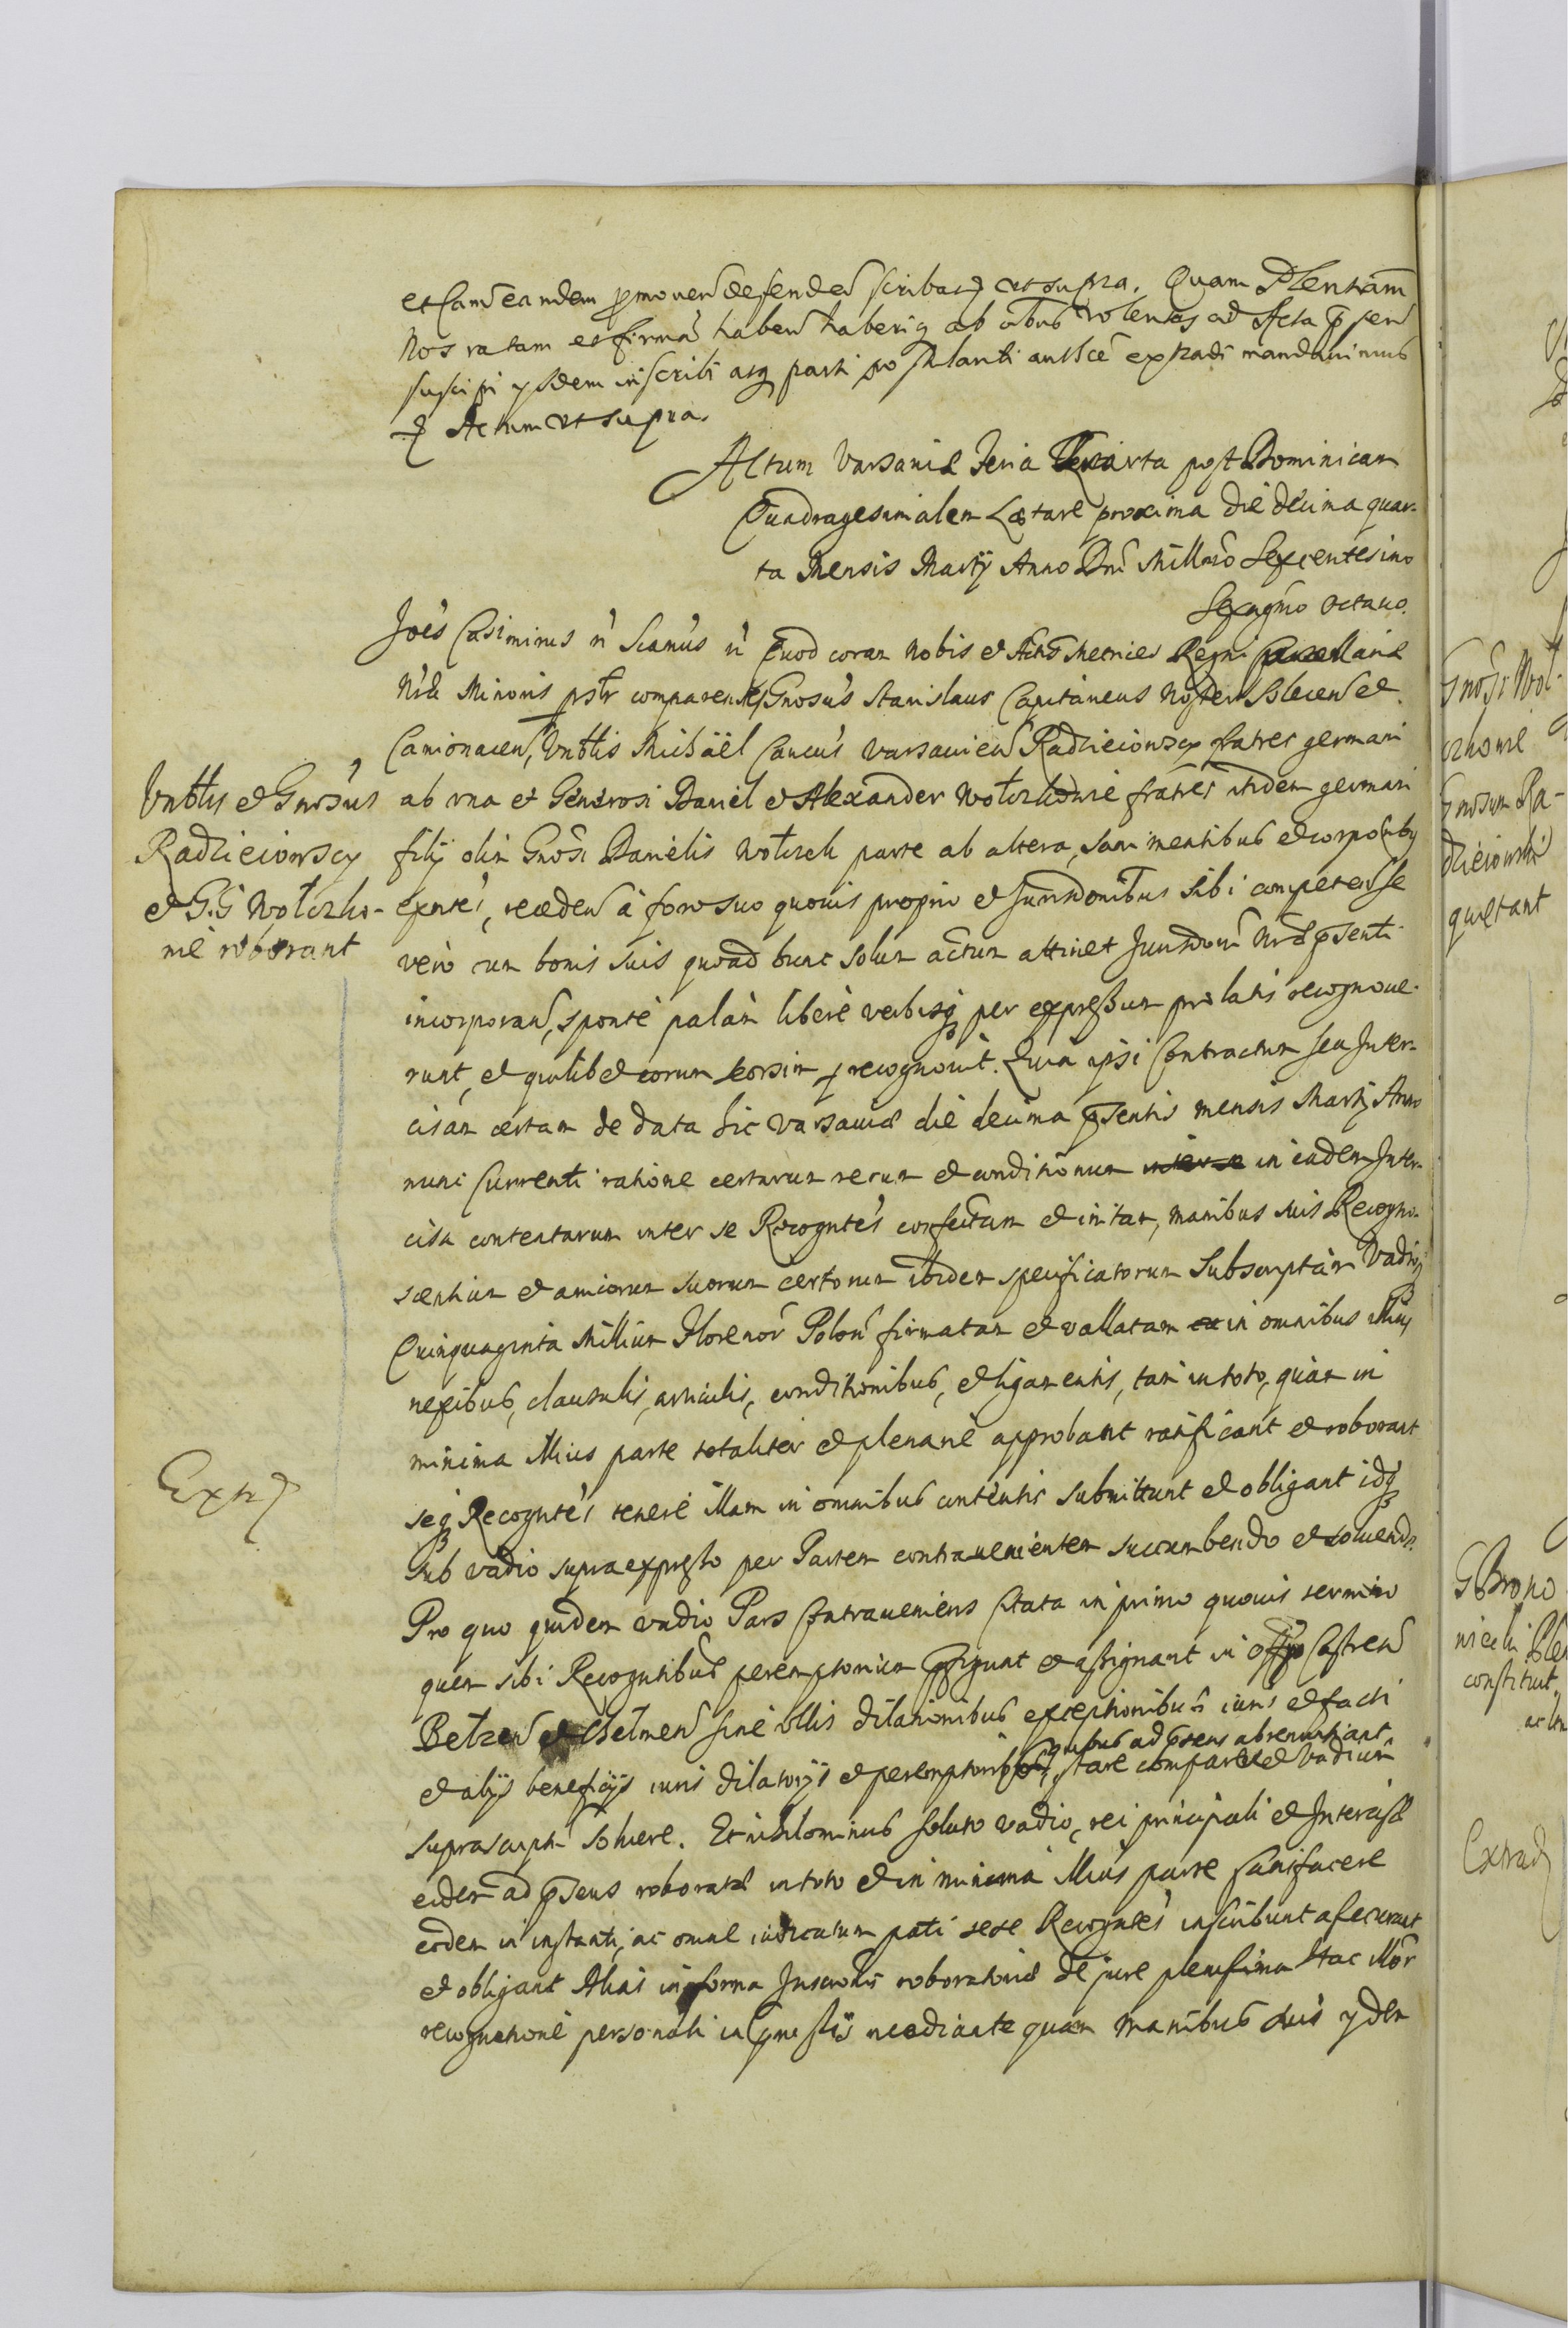 et Cam̃ eandem p̱mouen̄ defenden̄ scribat ꝛc ut supra. Quam Plentiam̃
Nos ratam et firmã haben̄ haberiq̷ ab õibus volentes ad Acta p̃sen̄
suscipi ÿsdem inscribi atq̷ parti postulanti autħcè extradi mandauimus
ꝛc Actum ut supra.
Actum Varsauiæ Feria Quarta post Dominicam
Quadragesimalem Lætare proxima die decima quar-
ta Mensis Martÿ Anno Dnĩ Millmõ Sexcentesimo
Sexagmõ octauo.
Joẽs Casimirus ꝛc Scimus ꝛc Quod coram Nobis et Actis Metrices Regni Cancellariæ
Nr̃æ Minoris psltr comparentes Gnosus Stanislaus Capitaneus Noster Solecen̄ et
Camionacen̄, Vnbtlis Michaël Canc̃us Varsauien̄ Radzieiowscy fratres germani
ab vna et Generosi Daniel et Alexander Wołczkowie fratres itidem germani
filÿ olim Gnosi Danielis Wołczek parte ab altera, sani mentibus et corporibq̷
exntes, receden̄ à foro suo quouis proprio et Jurisdonibus sibi competen̄ se
verò cum bonis suis quoad hunc solum actum attinet Jurisdoni Nr̃æ p̃senti
incorporan̄, spontè palàm liberè verbisq̷ per expressum prolatis recognoue-
runt, et quilibet eorum seorsim recognouit. Quia ipsi Contractum seu Inter-
cisam certam de data hic Varsauiæ die decima p̃sentis mensis Martÿ Anno
nunc Currenti ratione certarum rerum et conditionum inter se in eadem Inter-
cisa contentarum inter se Recogntes confectam et initam, manibus suis Recogno-
scentium et amicorum suorum certorum ibidem specificatorum Subscriptam Vadioq̷
Quinquaginta Millium Florenor̃ Polon̄ firmatam et vallatam ex in omnibus illius
nexibus, clausulis, articulis, conditionibus, et ligamentis, tam in toto, quàm in
minima illius parte totaliter et plenariè approbant ratificant et roborant
seq̷ Recogntes tenere illam in omnibus contentis submittunt et obligant idq̷
sub vadio supraexpresso per Partem contrauenientem succumbendo et soluendo.
Pro quo quidem vadio Pars Contraueniens Citata in primo quouis termino
quem sibi Recogntibus peremptorium p̃figunt et assignant in offo Castren̄
Bełzen̄ et Chełmen̄ sine vllis dilationibus exceptionibus iuris et facti
quibus ad p̃sens abrenuntiant
et alÿs beneficÿs iuris dilatorÿs et peremptorÿs stare comparere et Vadium
suprascript̃ soluere. Et nihilominus soluto vadio, rei principali et Intercisæ
eidem ad p̃sens roboratæ in toto et in minima illius parte satisfacere
eodem in instanti, ac omne iudicatum pati sese Recogntes inscribunt assecurant
et obligant Alias in forma Inscrònis roboratoriæ de jure plenissima Hac illor̃
recognitione personali in p̃missis mediante quam manibus suis ÿdem
Vnbtlis et Gnosus
Radzieiowscy
et G.G Wołczko-
wie roborant
Extr ꝛc
Gnosi Woł-
czkowie
Gnosum Ra-
dzieiowski
quietant
G Bropo
nicki Plen
constituit
Extrad